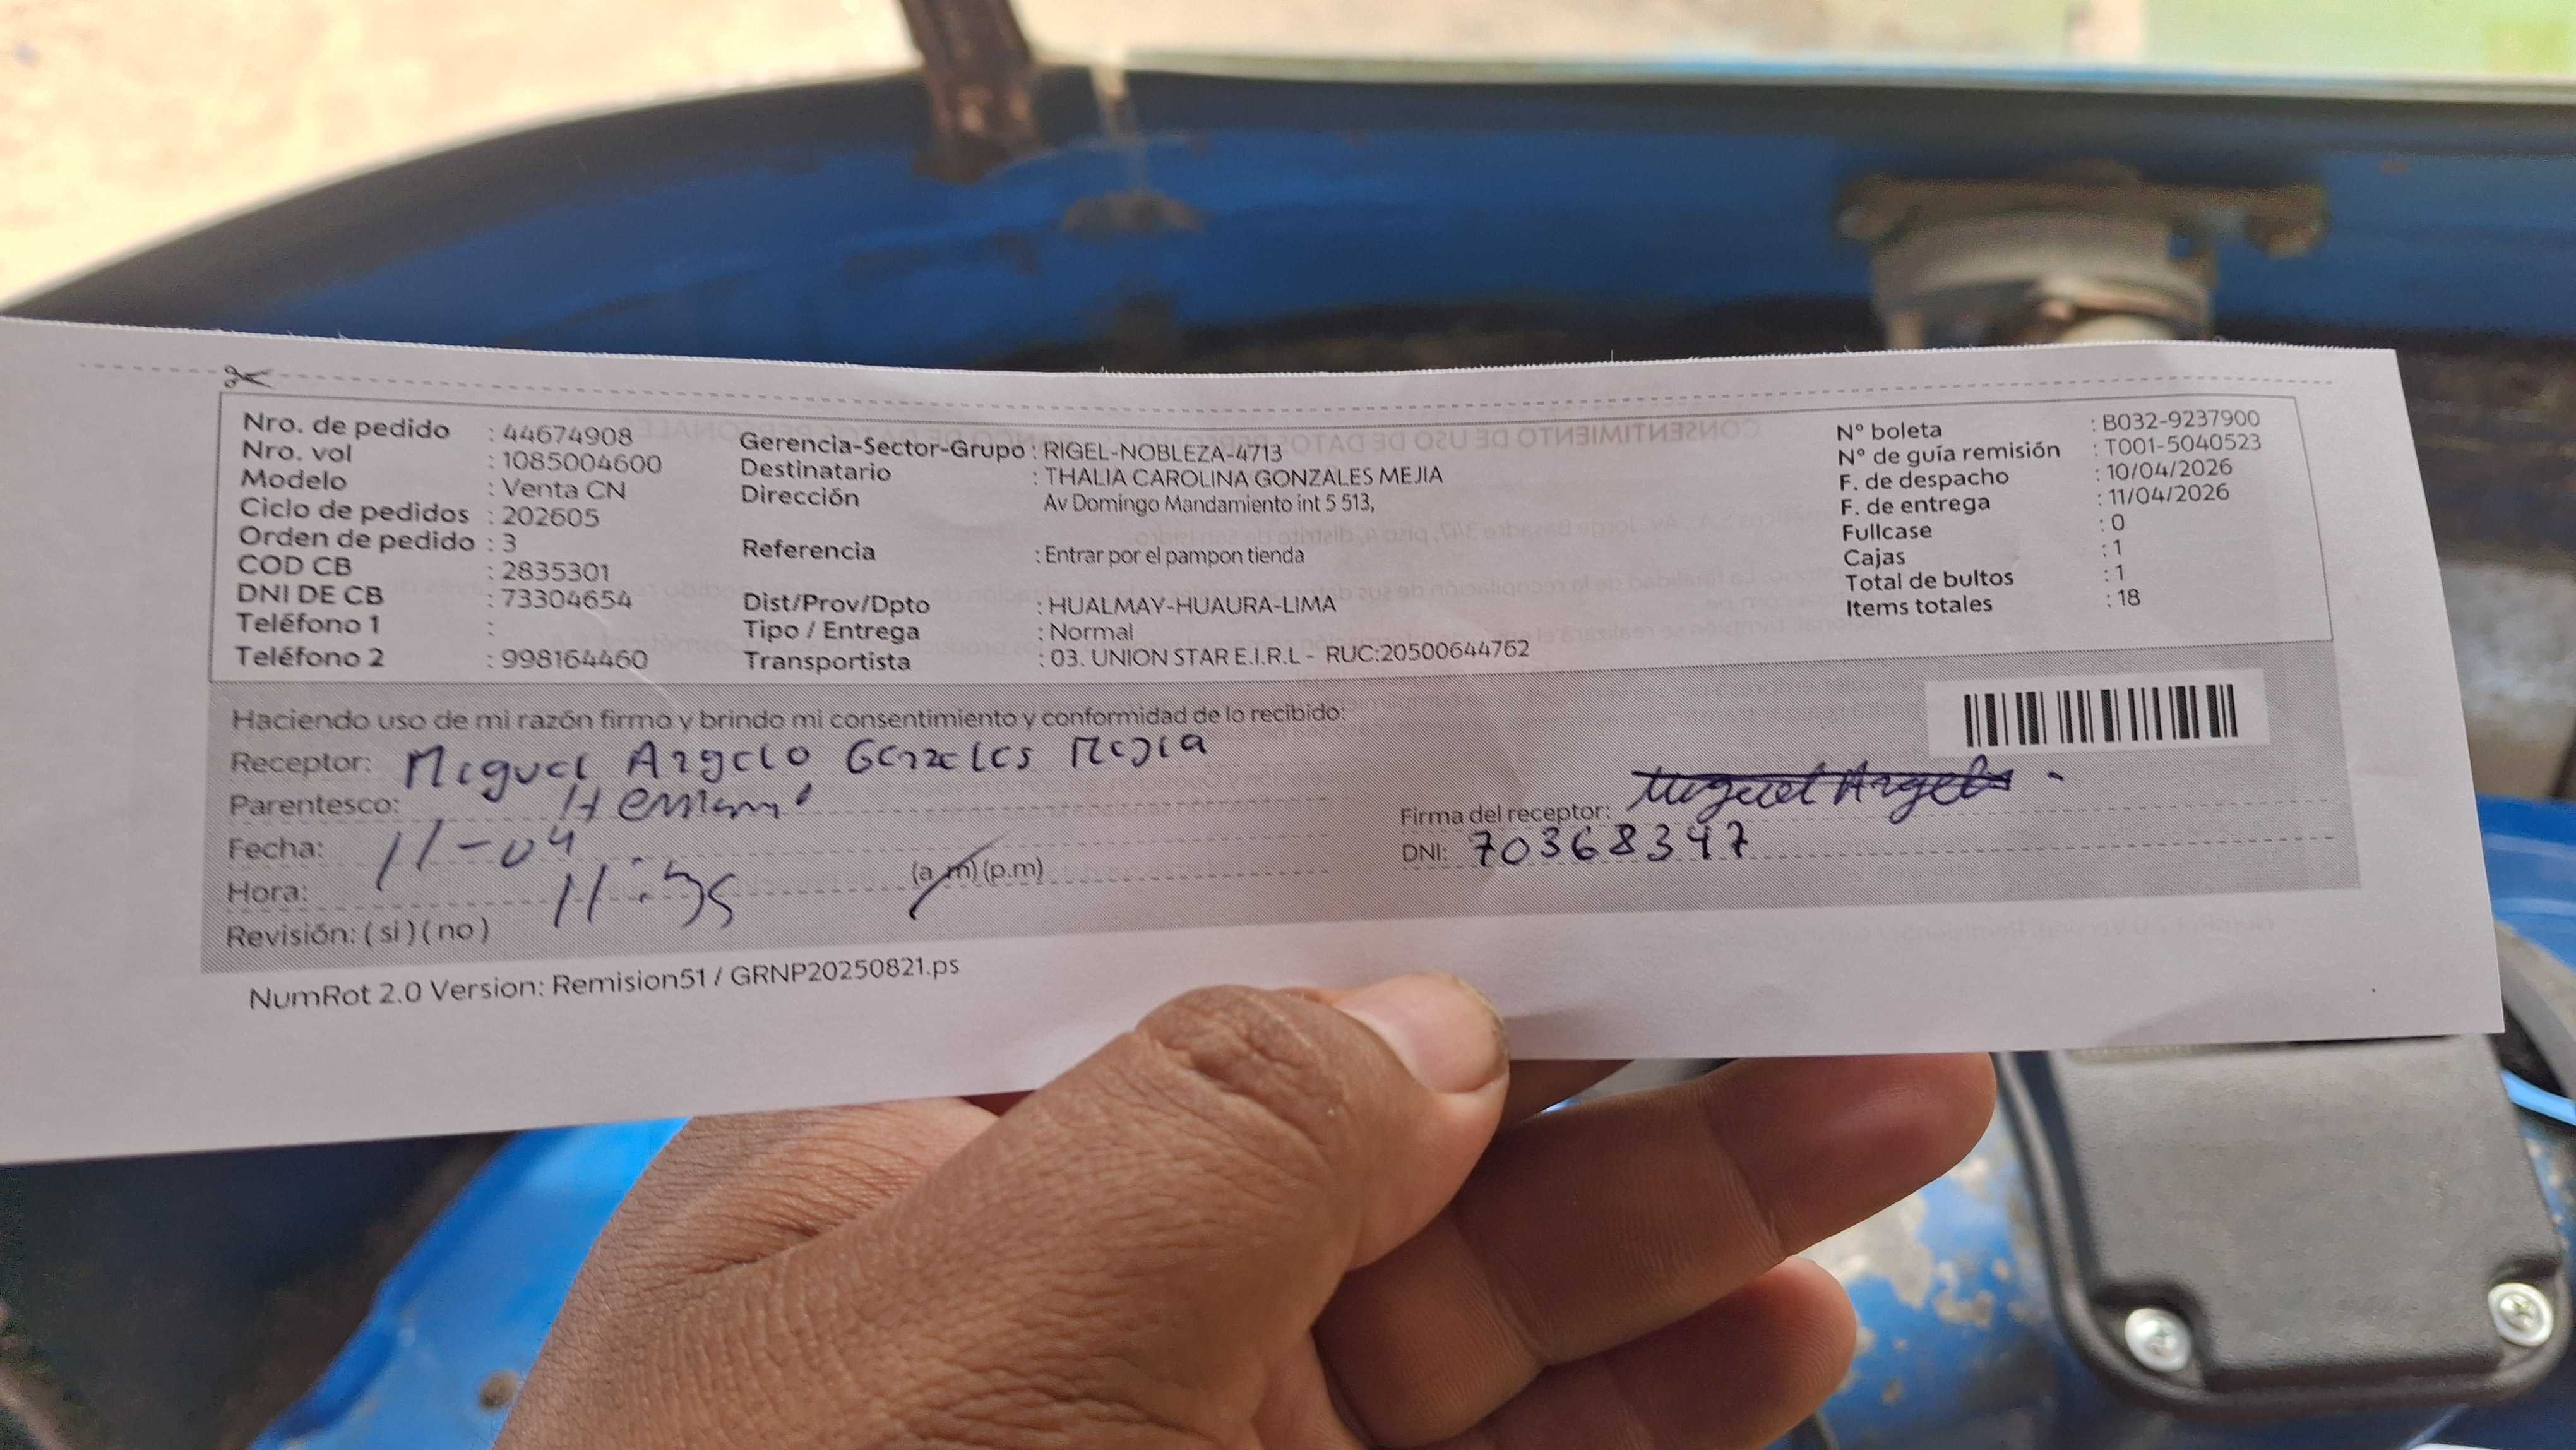 Nro. de pedido : 44674908
Nro. vol : 1085004600
Modelo : Venta CN
Ciclo de pedidos : 202605
Orden de pedido : 3
COD CB : 2835301
DNI DE CB : 73304654
Teléfono 1 :
Teléfono 2 : 998164460
Gerencia-Sector-Grupo : RIGEL-NOBLEZA-4713
Destinatario : THALIA CAROLINA GONZALES MEJIA
Dirección Av Domingo Mandamiento int 5 513,
Referencia : Entrar por el pampon tienda
Dist/Prov/Dpto : HUALMAY-HUAURA-LIMA
Tipo / Entrega : Normal
Transportista : 03. UNION STAR E.I.R.L - RUC:20500644762
N° boleta : B032-9237900
N° de guía remisión : T001-5040523
F. de despacho : 10/04/2026
F. de entrega : 11/04/2026
Fullcase : 0
Cajas : 1
Total de bultos : 1
Items totales : 18
Haciendo uso de mi razón firmo y brindo mi consentimiento y conformidad de lo recibido:
Receptor: Miguel Angelo Gonzales Mejia
Parentesco:
Fecha: 11-04
Hora: 11:35 (a.m) (p.m)
Revisión: ( si ) ( no )
Firma del receptor: Miguel Angelo
DNI: 70368347
NumRot 2.0 Version: Remision51 / GRNP20250821.ps